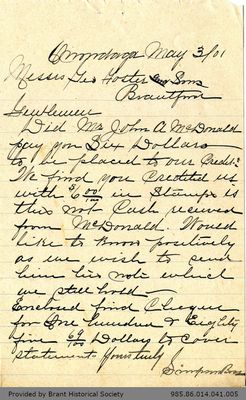 Onondaga May 3/01
Messrs Geo Foster and Sons
Brantford
Gentlemen
Did Mr John A McDonald
pay you Six Dollars
to be placed to our Credit?
We find you Credited us
with $6 00/100 in Stumps is
this not Cash received
from McDonald. Would
like to know positively
as we wish to send
him his note which
we still hold—
Enclosed find Cheque
for One hundred & Eighty
five 69/100 Dollars to cover
statement Yours truly
Simpson Bros
Provided by Brant Historical Society
985.86.014.041.005